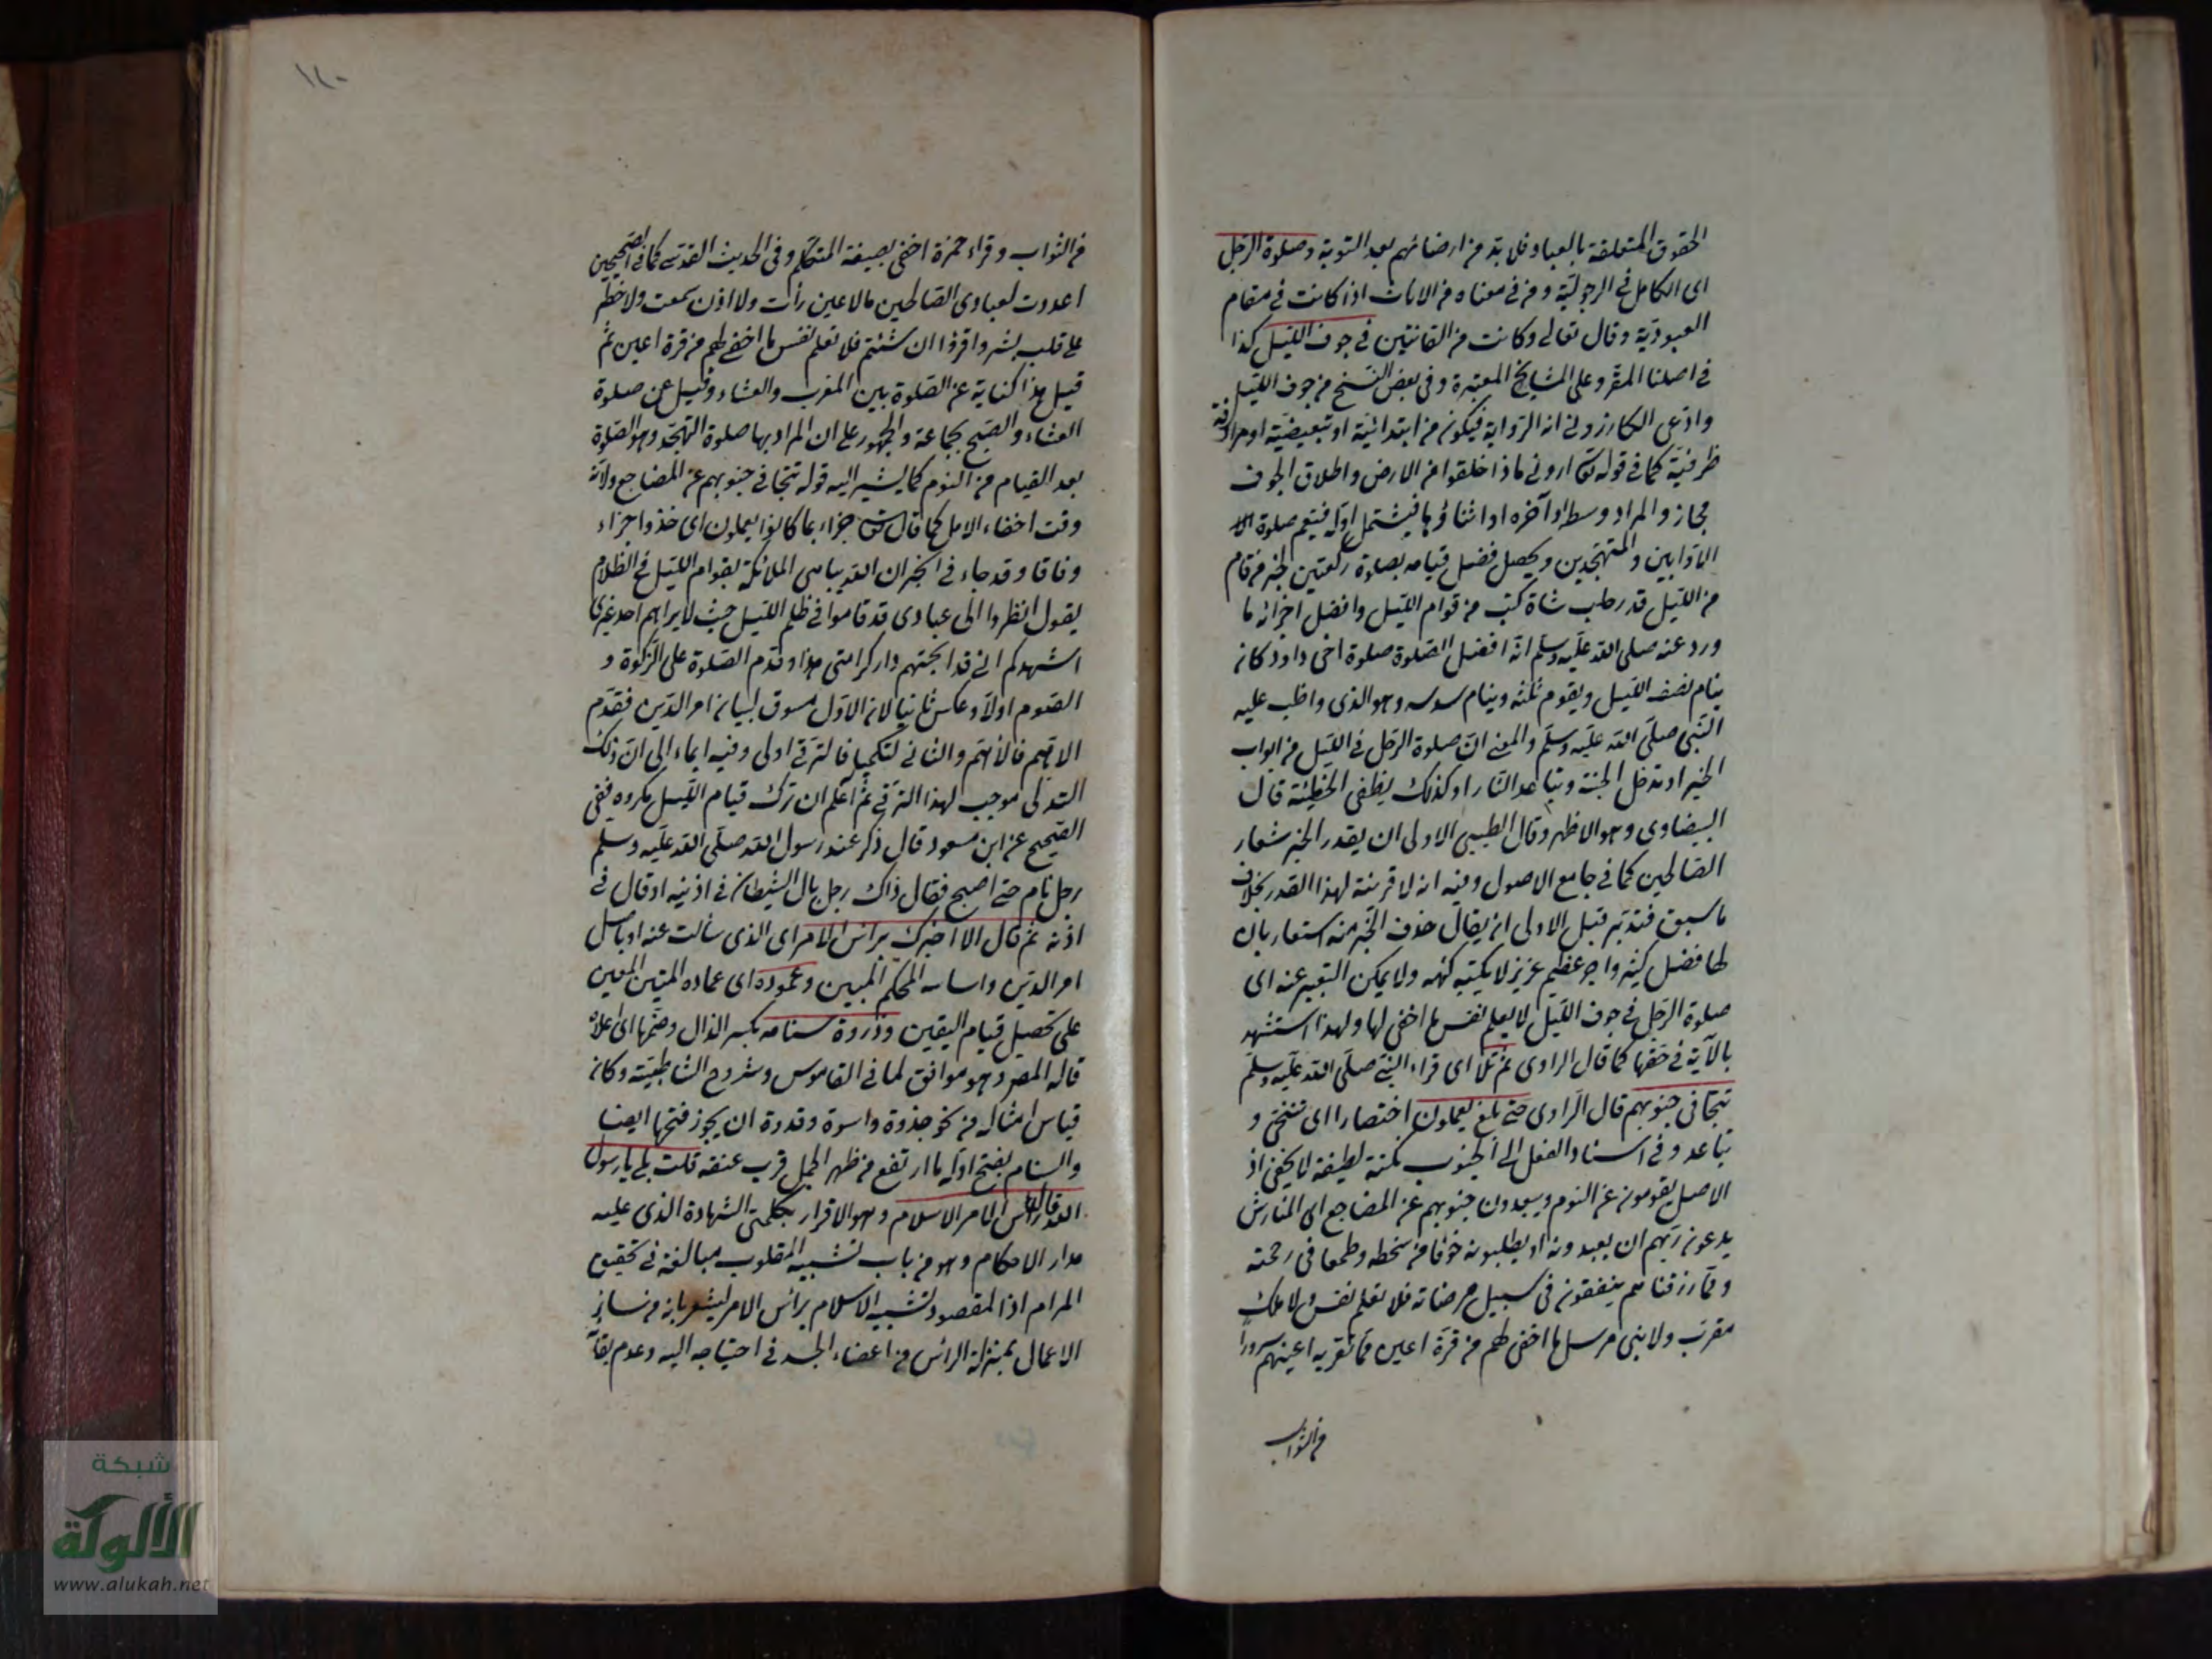 الحقوق المتعلقة بالعباد فلا بد من ارضائهم بعد التوبة وصلوة الرجل
اى الكامل فى الرجولية ومن فى معناه من الاناث اذا كانت فى مقام
العبودية وقال تعالى وكانت من القانتين فى جوف الليل كذا
فى اصلنا المقروء على المشايخ المعتبرة وفى بعض النسخ من جوف الليل
وادعى الكازرونى انه الرواية فيكون من ابتدائية او تبعيضية او مرادفة
ظرفية كما فى قوله تعالى ارونى ماذا خلقوا من الارض واطلاق الجوف
مجاز والمراد وسطه او آخره او اثناؤها فيشتمل اوله فيتعم صلوة
الاوابين والمتهجدين ويحصل فضل قيامه بصلوة ركعتين لخبر من قام
من الليل قدر حلب شاة كتب من قوام الليل وافضل اجزائه ما
ورد عنه صلى الله عليه وسلم انه افضل الصلوة صلوة اخى داود كان
ينام نصف الليل ويقوم ثلثه وينام سدسه وهو الذى واظب عليه
النبى صلى الله عليه وسلم والمعنى ان صلوة الرجل فى الليل من ابواب
الخير او تدخل الجنة وتباعد النار او كذلك يطفى الخطيئة قال
البيضاوى وهو الاظهر وقال الطيبى الاولى ان يقدر الخبر شعار
الصالحين كما فى جامع الاصول وفيه انه لا قرينة لهذا القدر بخلاف
ما سبق فتدبر قيل الاولى ان يقال حذف الخبر منه اشعار بان
لها فضل كثير واجر عظيم عزيز لا يكتنه كنهه ولا يمكن التعبير عنه اى
صلوة الرجل فى جوف الليل لا يعلم نفس ما اخفى لها ولهذا استشهد
بالآية فى حقها كما قال الراوى ثم تلا اى قراء النبى صلى الله عليه وسلم
تتجافى جنوبهم قال الراوى حتى بلغ يعملون اختصارا اى تتنحى و
تباعد وفى اسناد الفعل الى الجنوب نكتة لطيفة لا يخفى اذ
الاصل يقومون عن النوم ويبعدون جنوبهم عن المضاجع اى المفارش
يدعون ربهم ان يعبدونه او يطلبونه خوفا من سخطه وطمعا فى رحمته
ومما رزقناهم ينفقون فى سبيل مرضاته فلا تعلم نفس ولا ملك
مقرب ولا نبى مرسل ما اخفى لهم من قرة اعين مما تقر به اعينهم سرورا
من الثواب
١٢٠
من الثواب وقراء حمزة اخفى بصيغة المتكلم وفى الحديث القدسى كما فى الصحيحين
اعددت لعبادى الصالحين مالا عين رأت ولا اذن سمعت ولا خطر
على قلب بشر واقرؤا ان شئتم فلا تعلم نفس ما اخفى لهم من قرة اعين ثم
قيل هذا كناية عن الصلوة بين المغرب والعشاء وقيل عن صلوة
العشاء والصبح بجماعة والجمهور على ان المراد بها صلوة التهجد وهو الصلوة
بعد القيام من النوم كما يشير اليه قوله تتجافى جنوبهم عن المضاجع ولانه
وقت اخفاء الامل كما قال تعالى جزاء بما كانوا يعملون اى خذوا جزاء
وفاقا وقد جاء فى الخبر ان الله يباهى الملائكة بقوام الليل فى الظلام
يقول انظروا الى عبادى قد قاموا فى ظلم الليل حيث لا يراهم احد غيرى
اشهدكم انى قد ابحتهم دار كرامتى هذا وقدم الصلوة على الزكوة و
الصوم اولا وعكس ثانيا لان الاول مسوق لبيان امر الدين فقدم
الاهم فالاهم والثانى لتكميلها فالترقى اولى وفيه ايماء الى ان ذلك
التدلى موجب لهذا الترقى ثم اعلم ان ترك قيام الليل مكروه ففى
الصحيح عن ابن مسعود قال ذكر عند رسول الله صلى الله عليه وسلم
رجل نام حتى اصبح فقال ذاك رجل بال الشيطان فى اذنيه او قال فى
اذنه ثم قال الا اخبرك برأس الامر اى الذى سألت عنه او باصل
امر الدين واساسه المحكم المبين وعموده اى عماده المتين المعين
على تحصيل قيام اليقين وذروة سنامه بكسر الذال وضمها اى اعلاه
قاله المصر وهو موافق لما فى القاموس وشروح الشاطبية وكان
قياس امثاله من نحو جذوة واسوة وقدرة ان يجوز فتحها ايضا
والسنام بفتح اوله ما ارتفع من ظهر الجمل قرب عنقه قلت بلى يا رسول
الله قال رأس الامر الاسلام وهو الاقرار بكلمتى الشهادة الذى عليه
مدار الاحكام وهو من باب تشبيه المقلوب مبالغة فى تحقيق
المرام اذ المقصود تشبيه الاسلام برأس الامر ليشعر بانه من سائر
الاعمال بمنزلة الرأس من اعضاء الجسد فى احتياجه اليه وعدم بقائه
شبكة
الألوكة
www.alukah.net